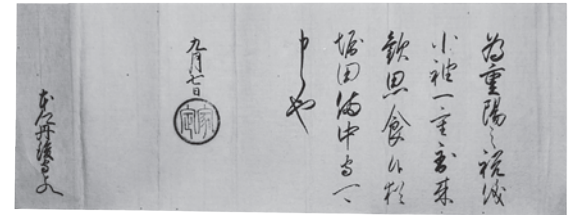 為重陽之祝儀
小袖一重到来
歓思食候猶
堀田備中守可
申候也
九月七日
家定
丹後守とのへ